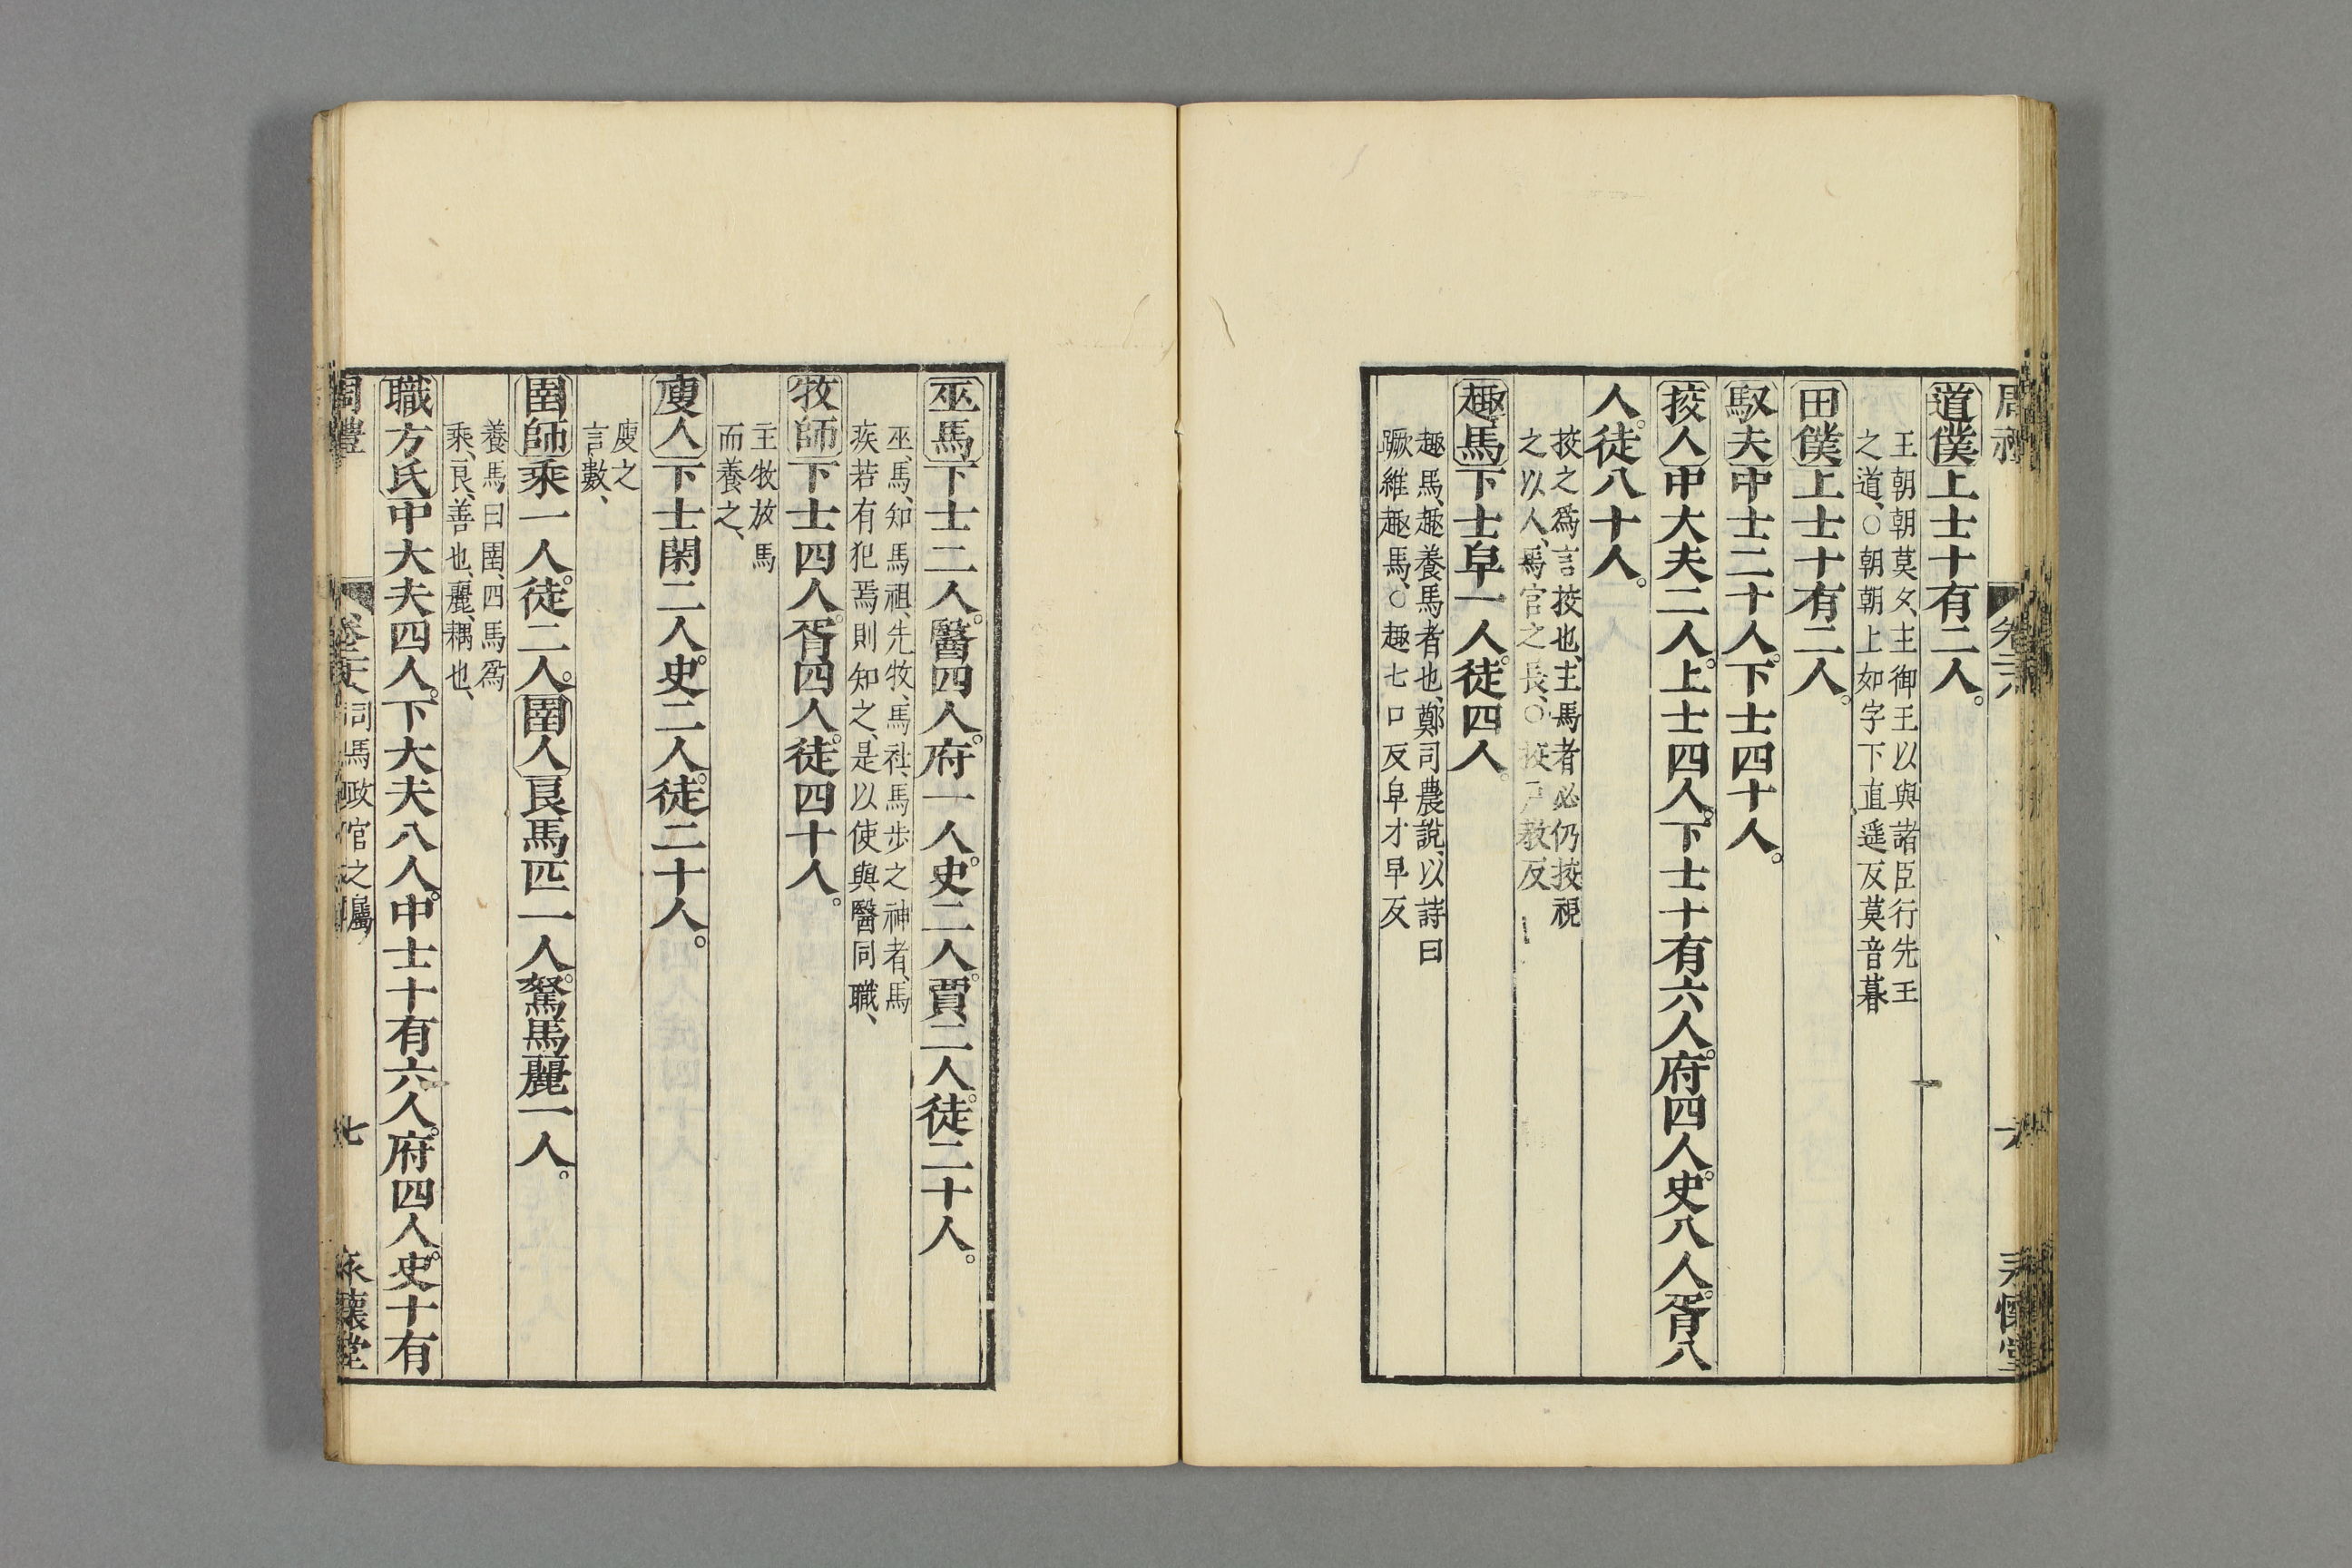 道僕上士十有二人。
王朝朝莫夕、主御王以與諸臣行先王
之道、○朝朝上如字下直遥反莫音暮
田僕上士十有二人。
馭夫中士二十人。下士四十人。
挍人中大夫二人。上士四人。下士十有六人。府四人。史八人。胥八
人。徒八十人。
挍之爲言挍也、主馬者必仍挍視
之以人、馬官之長、○挍戸教反
趣馬下士皁一人。徒四人。
趣馬、趣養馬者也、鄭司農說、以詩曰
蹶維趣馬、○趣七口反皁才早反
巫馬下士二人。醫四人。府一人。史二人。賈二人。徒二十人。
巫馬、知馬祖、先牧、馬社、馬步之神者、馬
疾若有犯焉則知之、是以使與醫同職、
牧師下士四人。胥四人。徒四十人。
主牧放馬
而養之、
廋人下士閑二人。史二人。徒二十人。
廋之
言數、
圉師乘一人。徒二人。圉人良馬匹一人。駑馬麗一人。
養馬曰圉、四馬爲
乘、良、善也、麗、耦也、
職方氏中大夫四人。下大夫八人。中士十有六人。府四人。史十有
周禮 司馬政官之屬 七 永懷堂